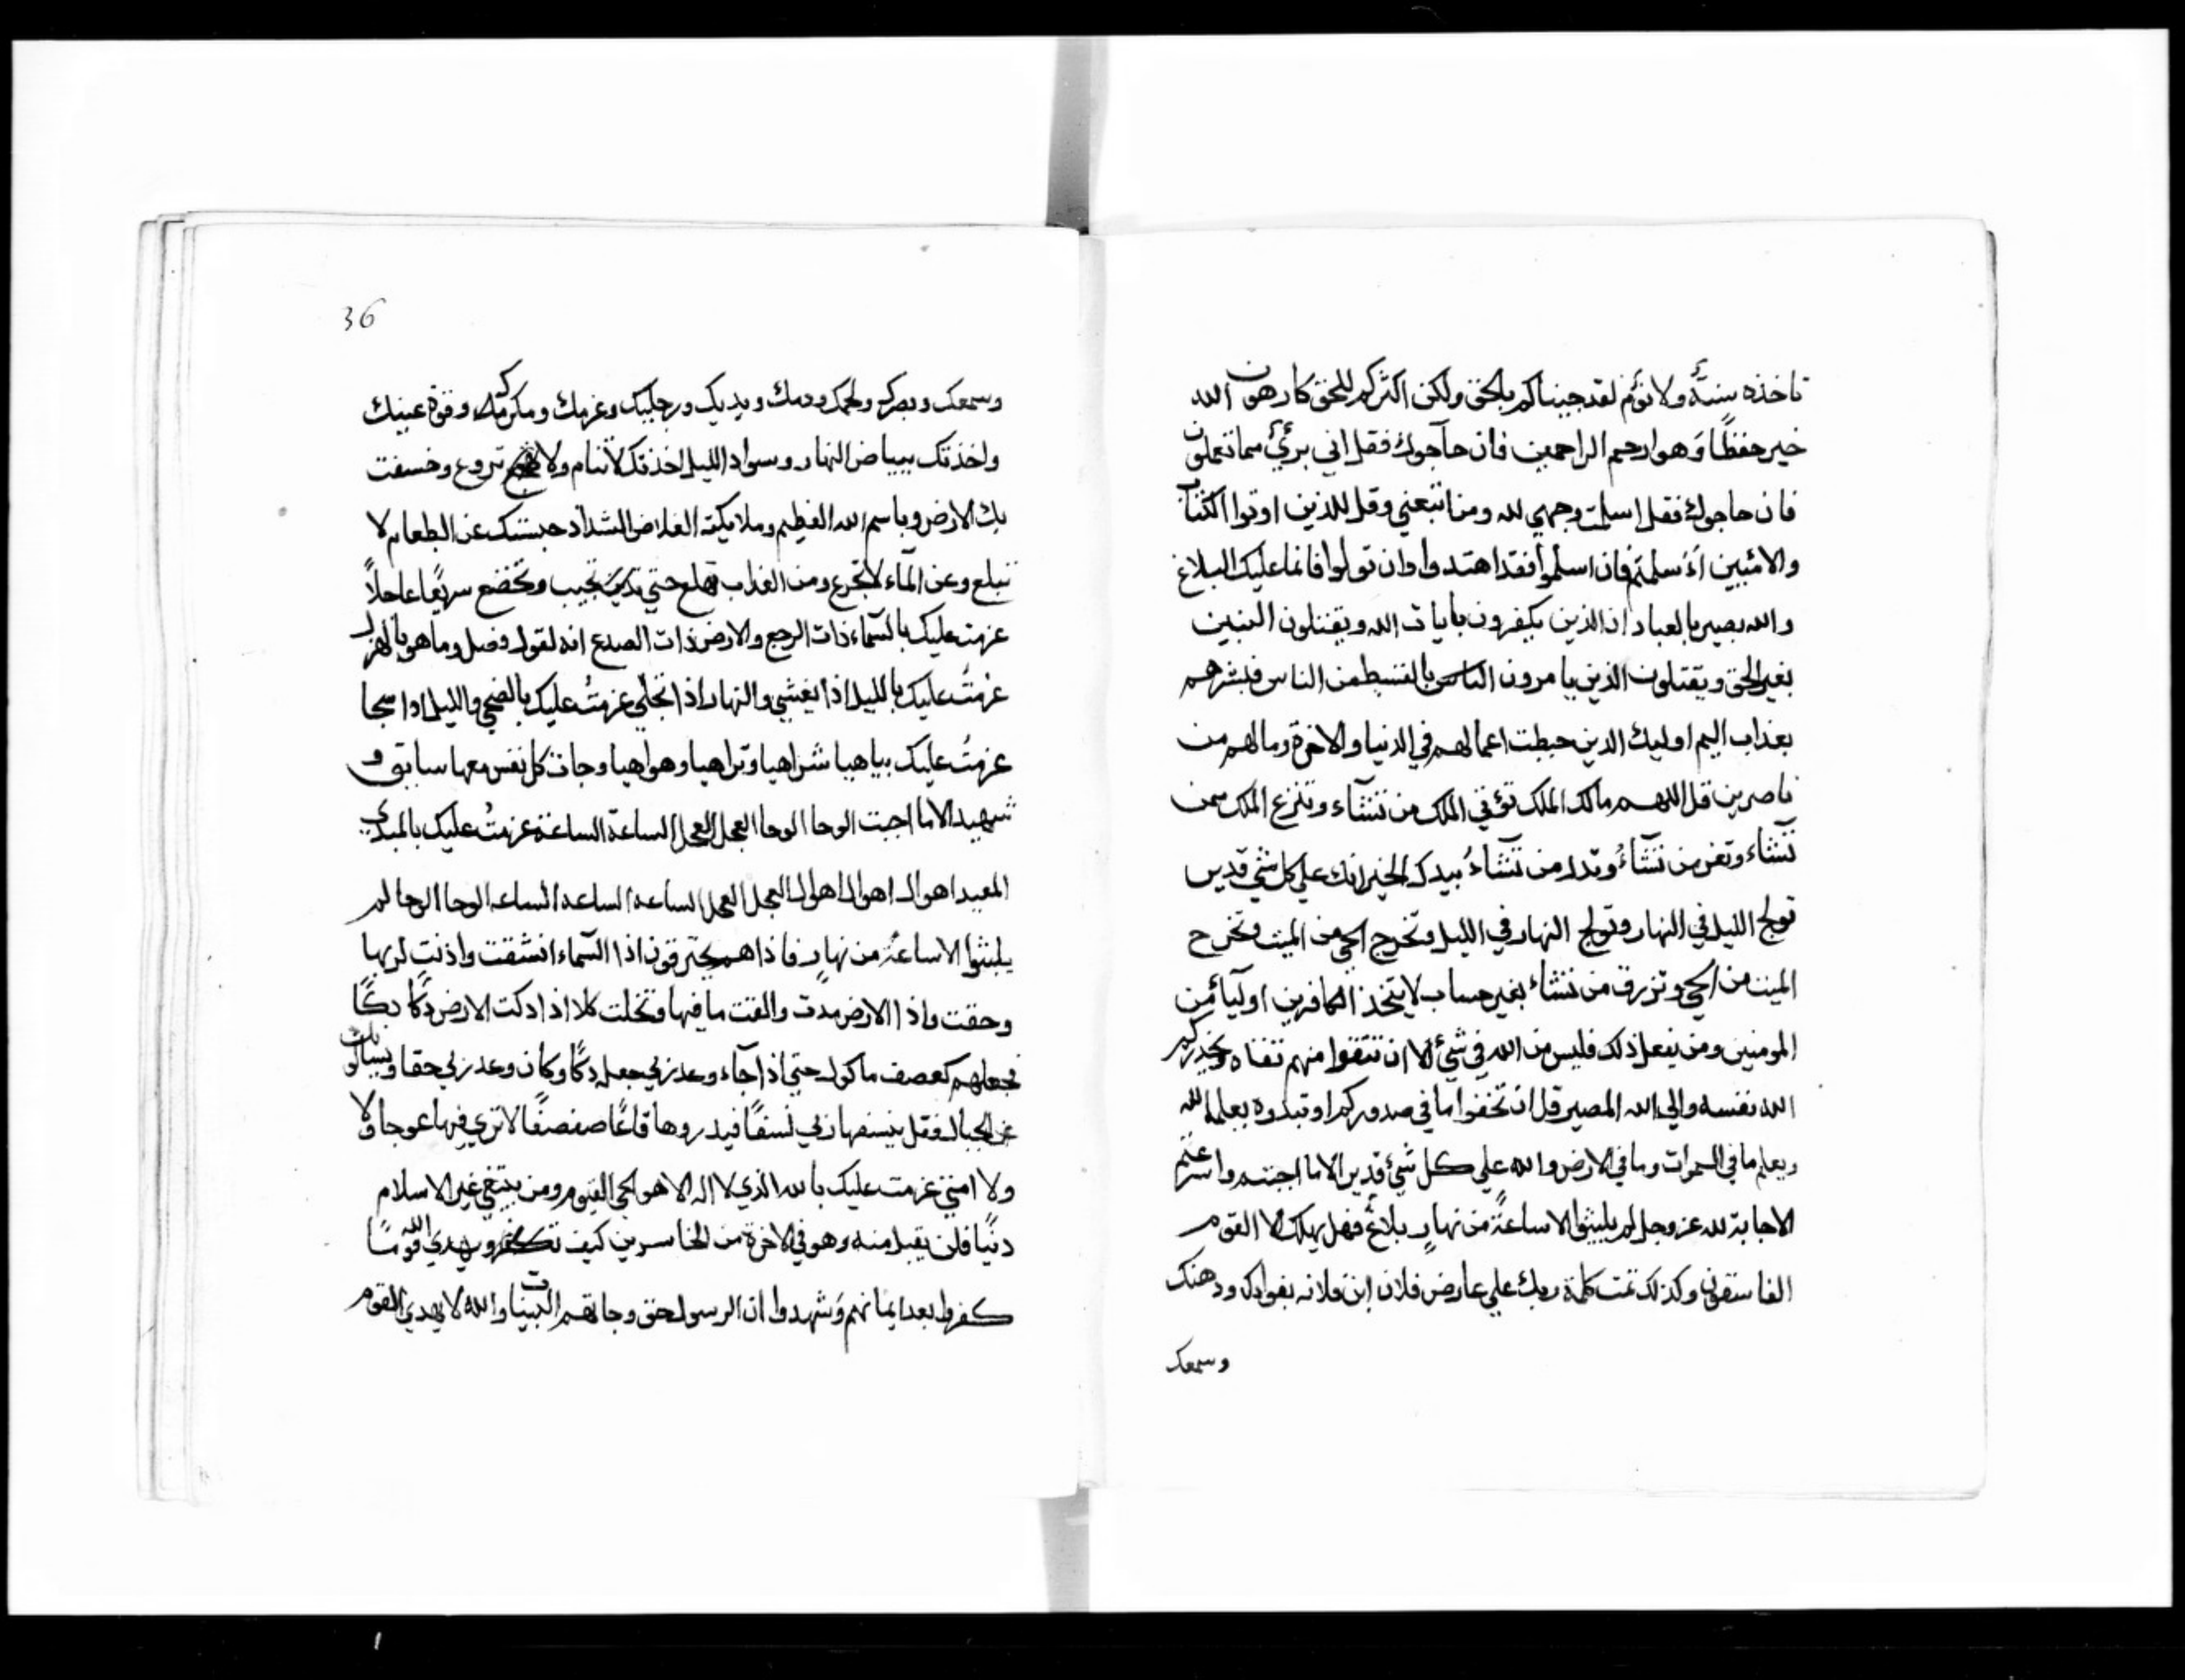 تاخذه سِنَةٌ ولا نوْم لقد جيناكم بالحق ولكن اكثركم للحق كارهون الله
خير حفظًا وَهو ارحم الراحمين فان حآجوك فقل اني بريٌ مما تعملون
فان حاجوك فقل اسلمت وجهي لله ومن اتبعني وقل للذين اوتوا الكتاب
والاميين أءَسلمتم فان اسلموا فقد اهتدوا وان تولوا فانما عليك البلاغ
والله بصير بالعباد ان الذين يكفرون بايات الله ويقتلون النبيين
بغير الحق ويقتلون الذين يامرون الناس بالقسط من الناس فبشرهم
بعذاب اليم اوليك الدين حبطت اعمالهم في الدنيا والاخرة وما لهم من
ناصرين قل اللهم مالك الملك توْتي الملك من تشآء وتنزع الملك ممن
تشآء وتعز من تشآءُ وتذل من تشآءُ بيدك الخير انك علي كل شي قدير
تولج الليل في النهار وتولج النهار في الليل وتخرج الحي من الميت وتخرج
الميت من الحي وتزرق من تشاءُ بغير حساب لا يتخذ الكافرين اوليآءَ من
المومنين ومن يفعل ذلك فليس من الله في شيءٌ الا ان تتقوا منهم تقاه ويحذركم
الله نفسه والي الله المصير قل ان تخفوا ما في صدوركم او تبدوه يعلمه الله
ويعلم ما في السموات وما في الارض والله علي كل شيءٌ قدير الا ما اجبتم واسرعتم
الاجابة لله عز وجل لم يلبثوا الا ساعةً من نهارٍ بلاغٌ فهل يهلك الا القوم
الفاسقون وكذلك تمت كلمة ربك علي عارض فلان ابن فلانه بفوادك ودهنك
وسمعك
36
وسمعك وبصرك ولحمك ودمك ويديك ورجليك وعزمك وقوة عينيك
واخذتك ببياض النهار وسواد الليل اخذتك لا تنام ولا تروع وخسفت
بك الارض وباسم الله العظيم وملايكته الغلاض الشداد حبستك عن الطعام لا
تبلع وعن المآء لا تجرع ومن العذاب تهلع حتي تجيب وتخضع سريعًا عاجلًا
عزمت عليك بالسّماء ذات الرجع والارض ذات الصدع انه لقول فصل وما هو بالهزل
عزمتُ عليك بالليل اذا يغشي والنهار اذا تجلّي عزمتُ عليك بالضحي والليل اذا سجا
عزمتُ عليك بياهيا شراهيا وتراهيا وهواهيا وجات كل نفس معها سايق و
شهيد الا ما اجبت الوحا الوحا العجل العجل الساعة الساعة عزمتُ عليك بالمبدي
المعيد اهوال اهوال العجل العجل الساعه الساعه الساعه الوحا الوحا لم
يلبثوا الا ساعةً من نهارٍ فاذا هم يحترقون اذا السّماء انشقت واذنت لربها
وحقت واذا الارض مدت والقت ما فيها وتخلت كلا اذا دكت الارض دكًا دكًا
فجعلهم كعصف ماكول حتي اذا جآء وعد ربي جعله دكًا وكان وعد ربي حقا ويسالونك
عن الجبال فقل ينسفها ربي نسفًا فيذروها قاعًا صفصفًا لا تري فيها عوجا ولا
ولا امتي عزمت عليك بالله الذي لا اله الا هو الحي القيوم ومن يبتغي غير الاسلام
دينًا فلن يقبل منه وهو في الاخرة من الخاسرين كيف يهدي الله قومًا
كفروا بعد ايمانهم وَشهدوا ان الرسول حق وجاتهم البينات والله لا يهدي القوم